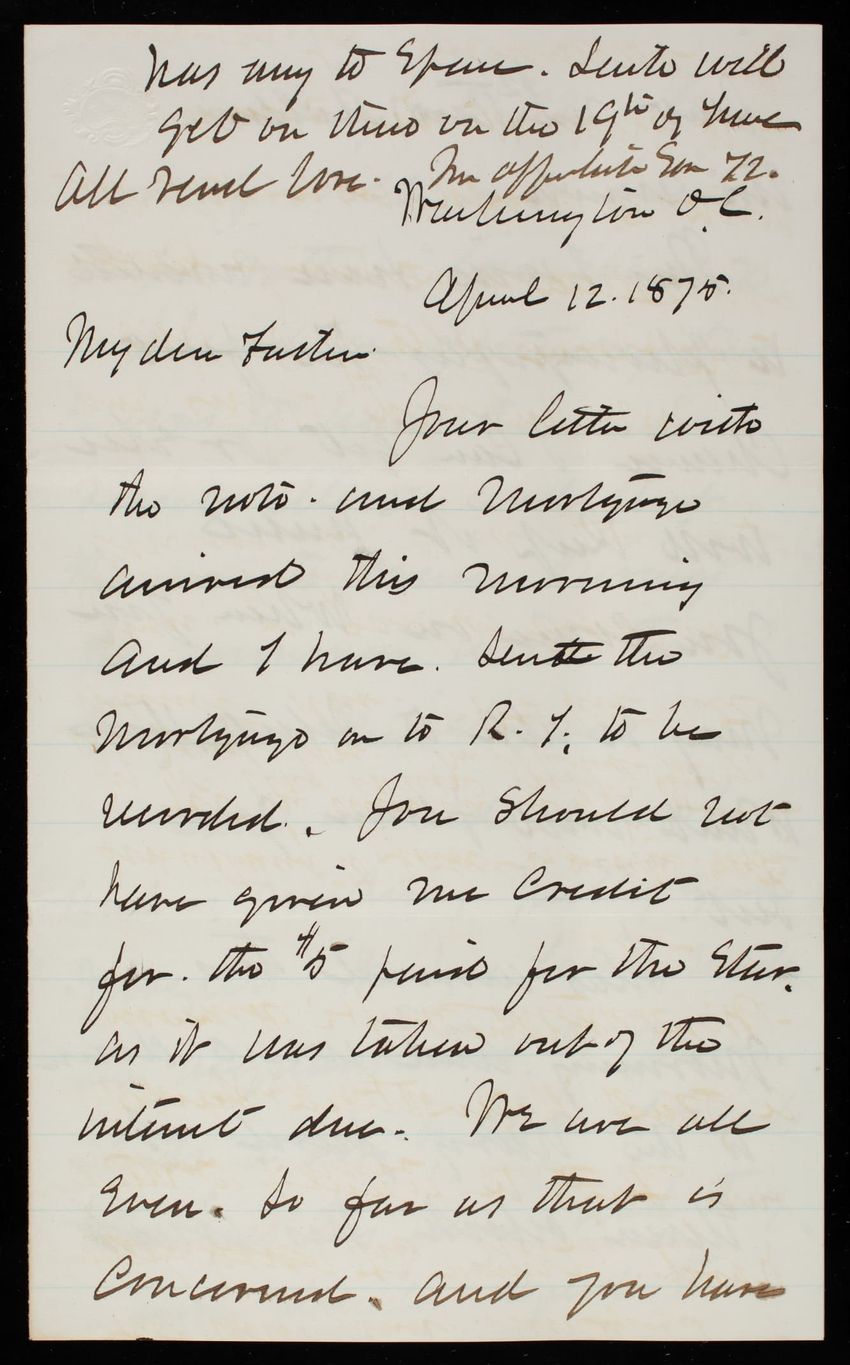 has any to spare. will
get on there on the 19th of June
All send love.
Washington D.C.
April 12. 1875.
My dear
Your letter with
the note and Mortgage
arrived this morning
and I have sent the
Mortgage on to R. I. to be
recorded. You should not
have given me Credit
for the $5 paid for the Star.
as it was taken out of the
interest due. We are all
Even. So far as that is
Concerned. and you have